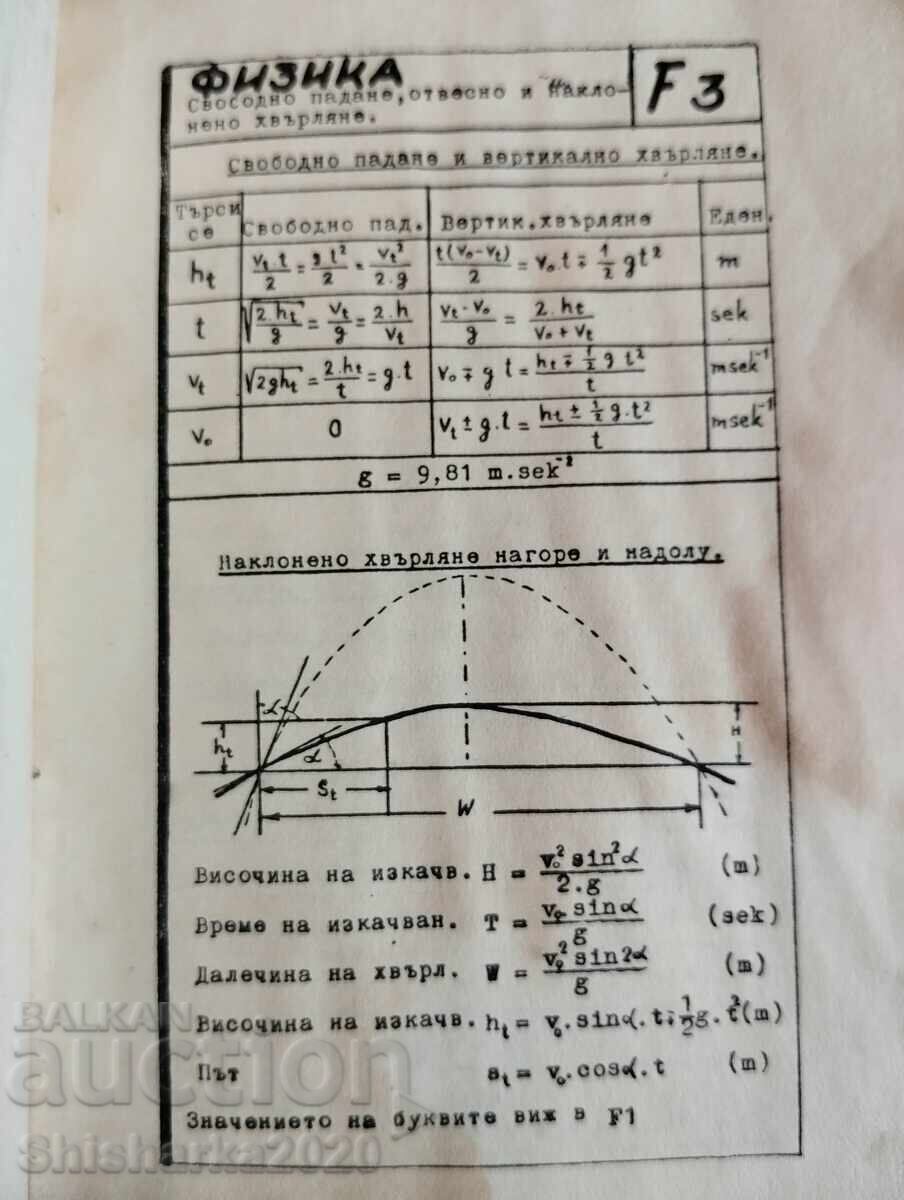 ФИЗИКА
Свободно падане, отвесно и накло-
нено хвърляне.
F 3
Свободно падане и вертикално хвърляне.
Търси се | Свободно пад. | Вертик.хвърляне | Еден.
hₜ | vₜ.t/2 = g t²/2 = vₜ²/2.g | t(v₀-vₜ)/2 = v₀.t ∓ 1/2 gt² | m
t | √(2.hₜ/g) = vₜ/g = 2.h/vₜ | vₜ-v₀/g = 2.hₜ/v₀+vₜ | sek
vₜ | √2ghₜ = 2.hₜ/t = g.t | v₀ ∓ g t = hₜ ∓ 1/2 g t²/t | msek⁻¹
v₀ | 0 | vₜ ± g.t = hₜ ± 1/2 g.t²/t | msek⁻¹
g = 9,81 m.sek⁻²
Наклонено хвърляне нагоре и надолу.
α
hₜ α H
Sₜ
W
Височина на изкачв. H = v₀² sin²α/2.g (m)
Време на изкачван. T = v₀ sinα/g (sek)
Далечина на хвърл. W = v₀² sin2α/g (m)
Височина на изкачв. hₜ = v₀.sinα.t ∓ 1/2 g.t² (m)
Път sₜ = v₀.cosα.t (m)
Значението на буквите виж в F1
BALKAN
auction
Shisharka2020